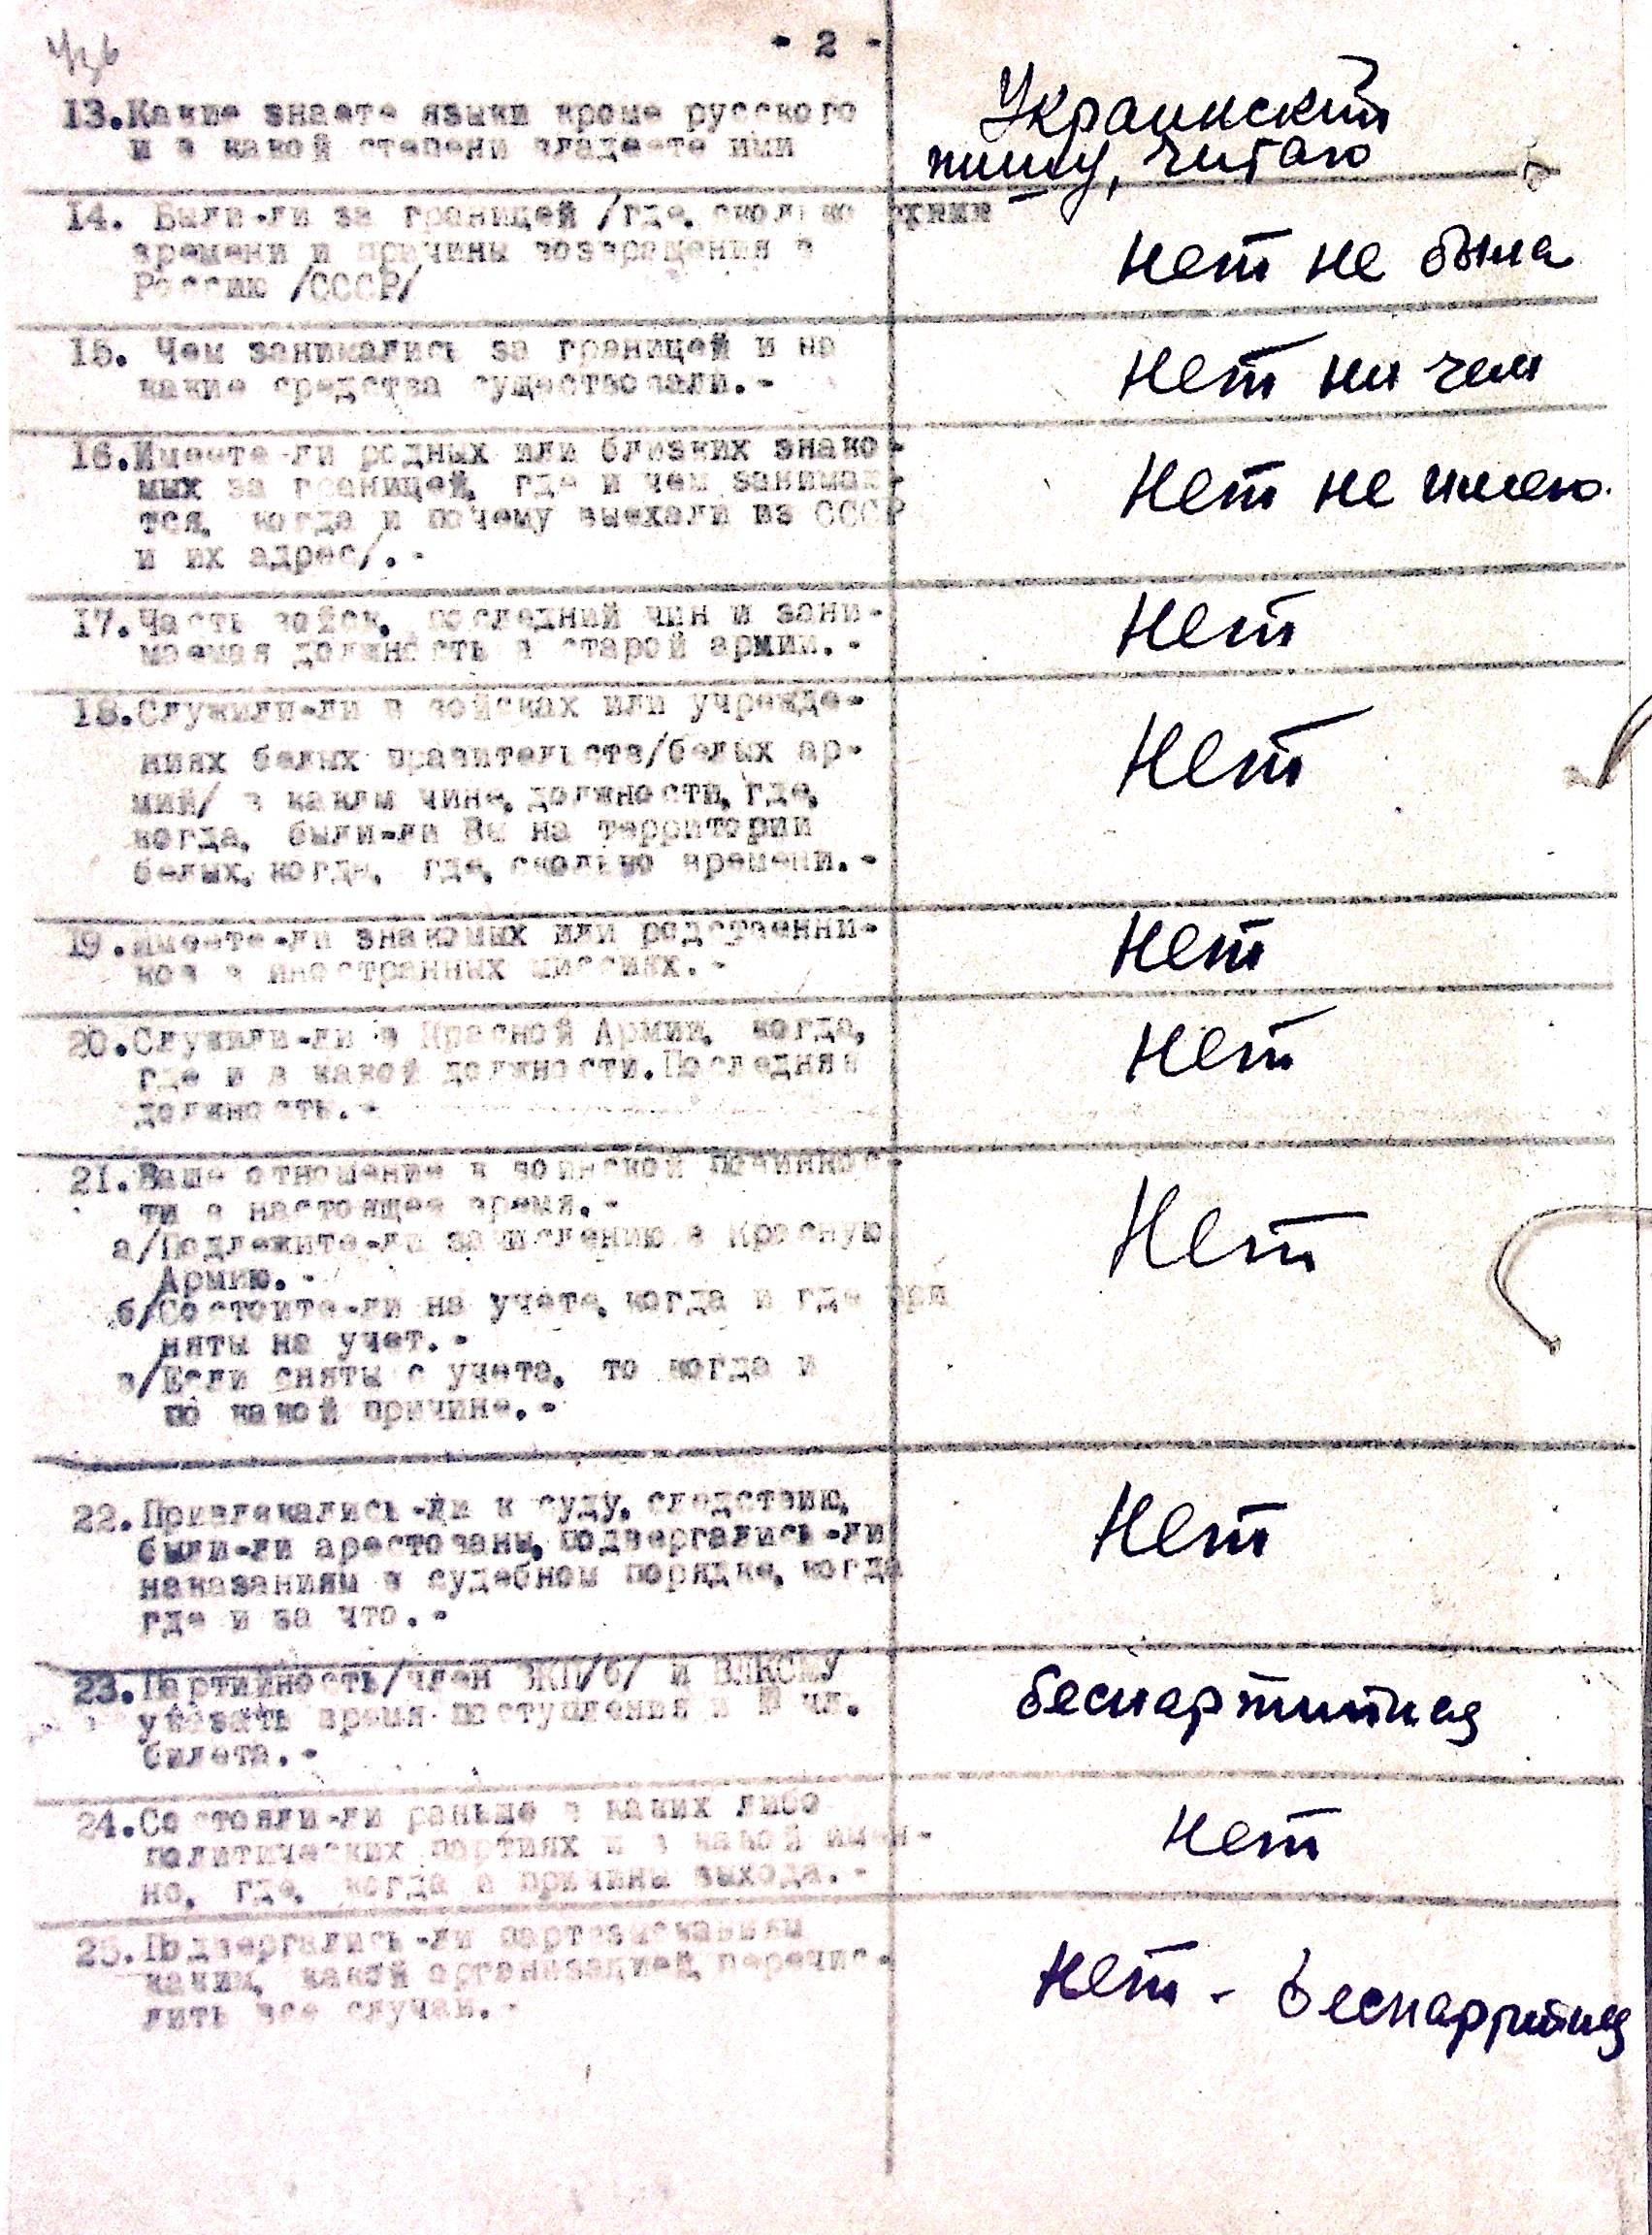 - 2 -
13.Какие знаете языки кроме русского
и в какой степени владеете ими
Украинский
пишу, читаю
14. Были-ли за границей /где, сколько
времени и причины возвращения в
Россию /СССР/
Нет не была
15. Чем занимались за границей и на
какие средства существовали.-
Нет ни чем
16.Имеете-ли родных или близких знако-
мых за границей, где и чем занимаю-
тся, когда и почему выехали из СССР
и их адрес/.-
Нет не имею.
17.Часть войск, последний чин и зани-
маемая должность в старой армии.-
Нет
18.Служили-ли в войсках или учрежде-
ниях белых правительств/белых ар-
мий/ в каком чине, должности, где,
когда, были-ли Вы на территории
белых, когда, где, сколько времени.-
Нет
19.Имеете-ли знакомых или родственни-
ков в иностранных миссиях.-
Нет
20.Служили-ли в Красной Армии, когда,
где и в какой должности.Последняя
должность.-
Нет
21.Ваше отношение к воинской повиннос-
ти в настоящее время.-
а/Подлежите-ли зачислению в Красную
Армию.-
б/Состоите-ли на учете, когда и где при
няты на учет.-
в/Если сняты с учета, то когда и
по какой причине.-
Нет
22.Привлекались-ли к суду, следствию,
были-ли арестованы, подвергались-ли
наказаниям в судебном порядке, когда
где и за что.-
Нет
23.Партийность/член ВКП/б/ и ВЛКСМ/
указать время поступления и № чл.
билета.-
беспартийная
24.Состояли-ли раньше в каких либо
политических партиях и в какой имен-
но, где, когда и причины выхода.-
Нет
25.Подвергались-ли партвзысканиям
каким, какой организацией, перечис-
лить все случаи.-
Нет - беспартийная